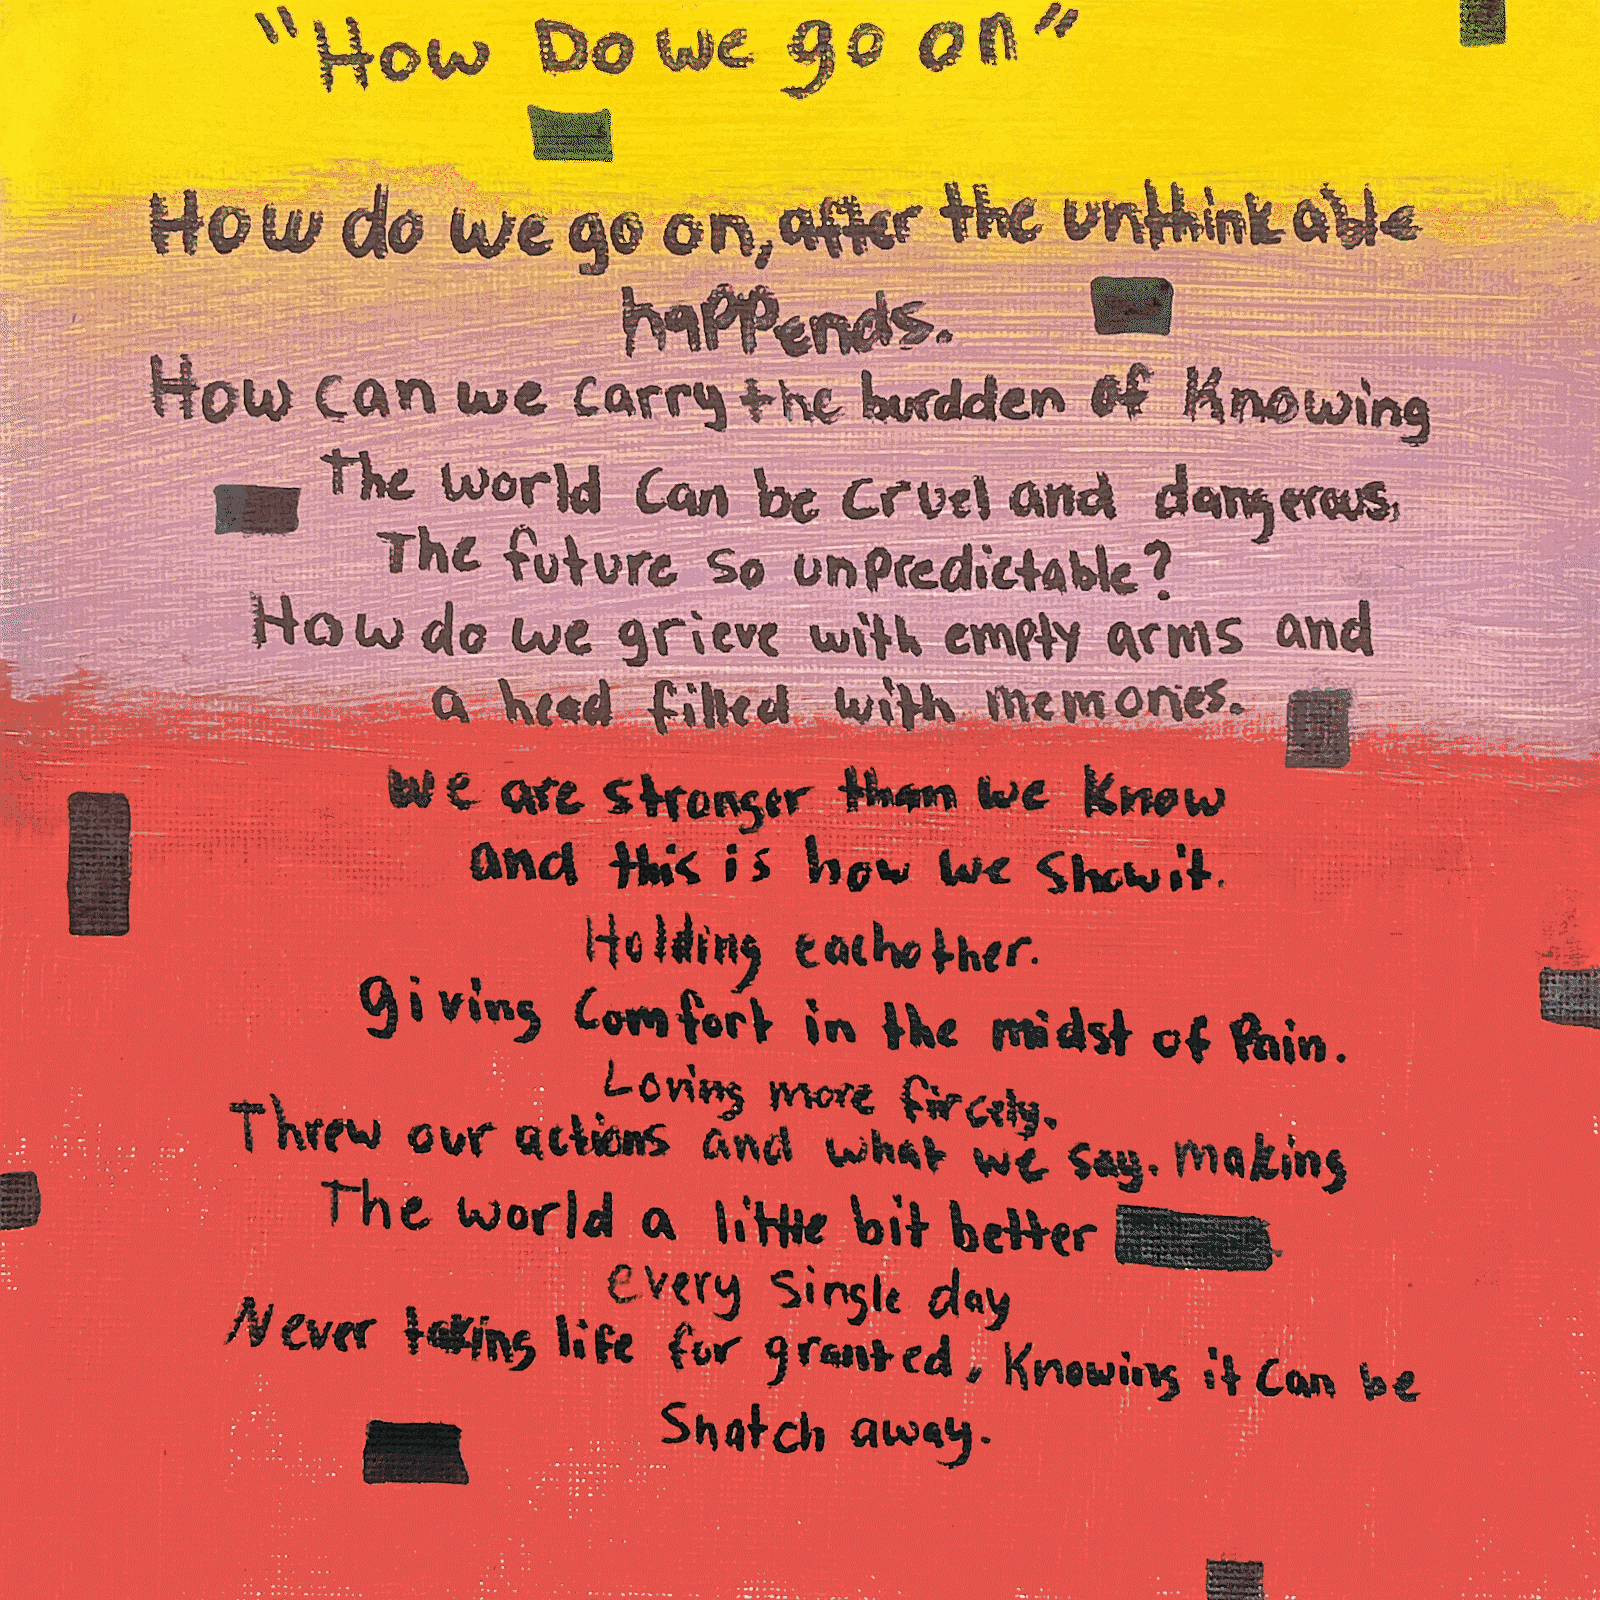 "How Do we go on"
How do we go on, after the unthinkable
happends.
How can we carry the burdden of Knowing
The world Can be Cruel and dangerous,
The future so unpredictable?
How do we grieve with empty arms and
a head filled with memories.
We are stronger than we Know
and this is how we Show it.
Holding eachother.
Giving Comfort in the midst of Pain.
Loving more fircely.
Threw our actions and what we say. Making
The world a little bit better
every Single day
Never taking life for granted, Knowing it Can be
Snatch away.